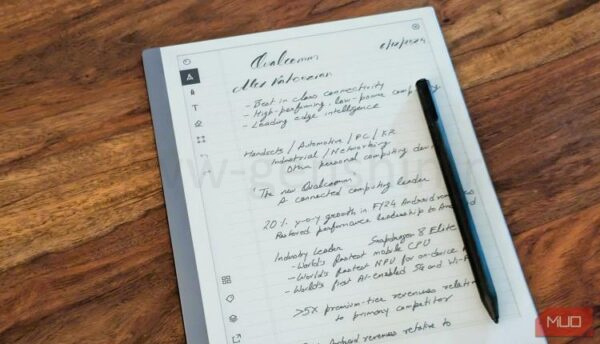 Qualcomm
Alex Katouzian
- Best in class connectivity
- High-performing, low-power computing
- Leading edge intelligence
Handsets / Automotive / PC / XR
Industrial / Networking
Other personal computing
The new Qualcomm
A connected computing leader
20% y-o-y growth in FY24 Android revenues
Restored performance leadership to Android
Industry Leader Snapdragon 8 Elite
- World's fastest mobile CPU
- World's fastest NPU for on-device
- World's first AI-enabled 5G and Wi-Fi
>5X premium-tier revenues
to primary competitor
Android revenues relative to
MUO